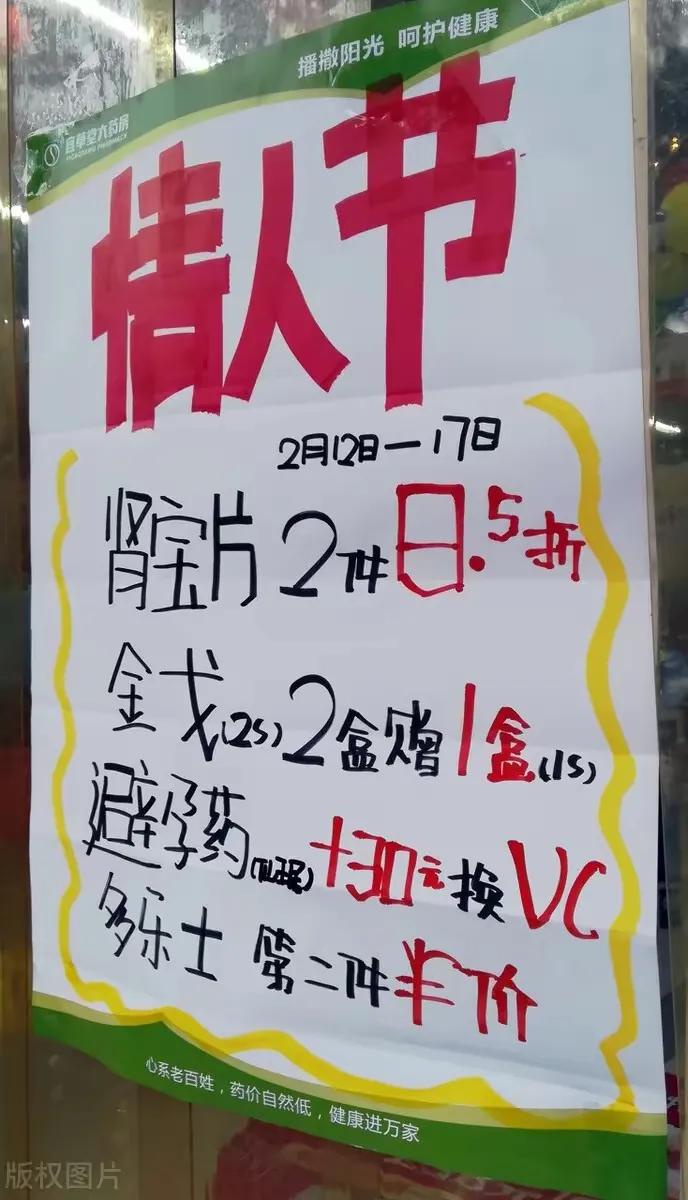 播撒阳光 呵护健康
宜草堂大药房
情人节
2月12日一17日
肾宝片 2件 8.5折
金戈(2S) 2盒赠1盒(1S)
避孕药 +30元换VC
多乐士 第二件半价
心系老百姓，药价自然低，健康进万家
版权图片